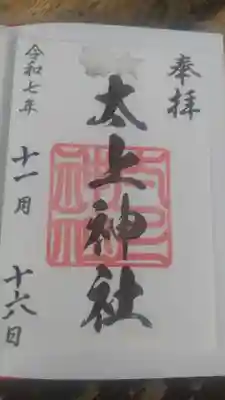 奉拝
太上神社
令和七年
十一月
十六日